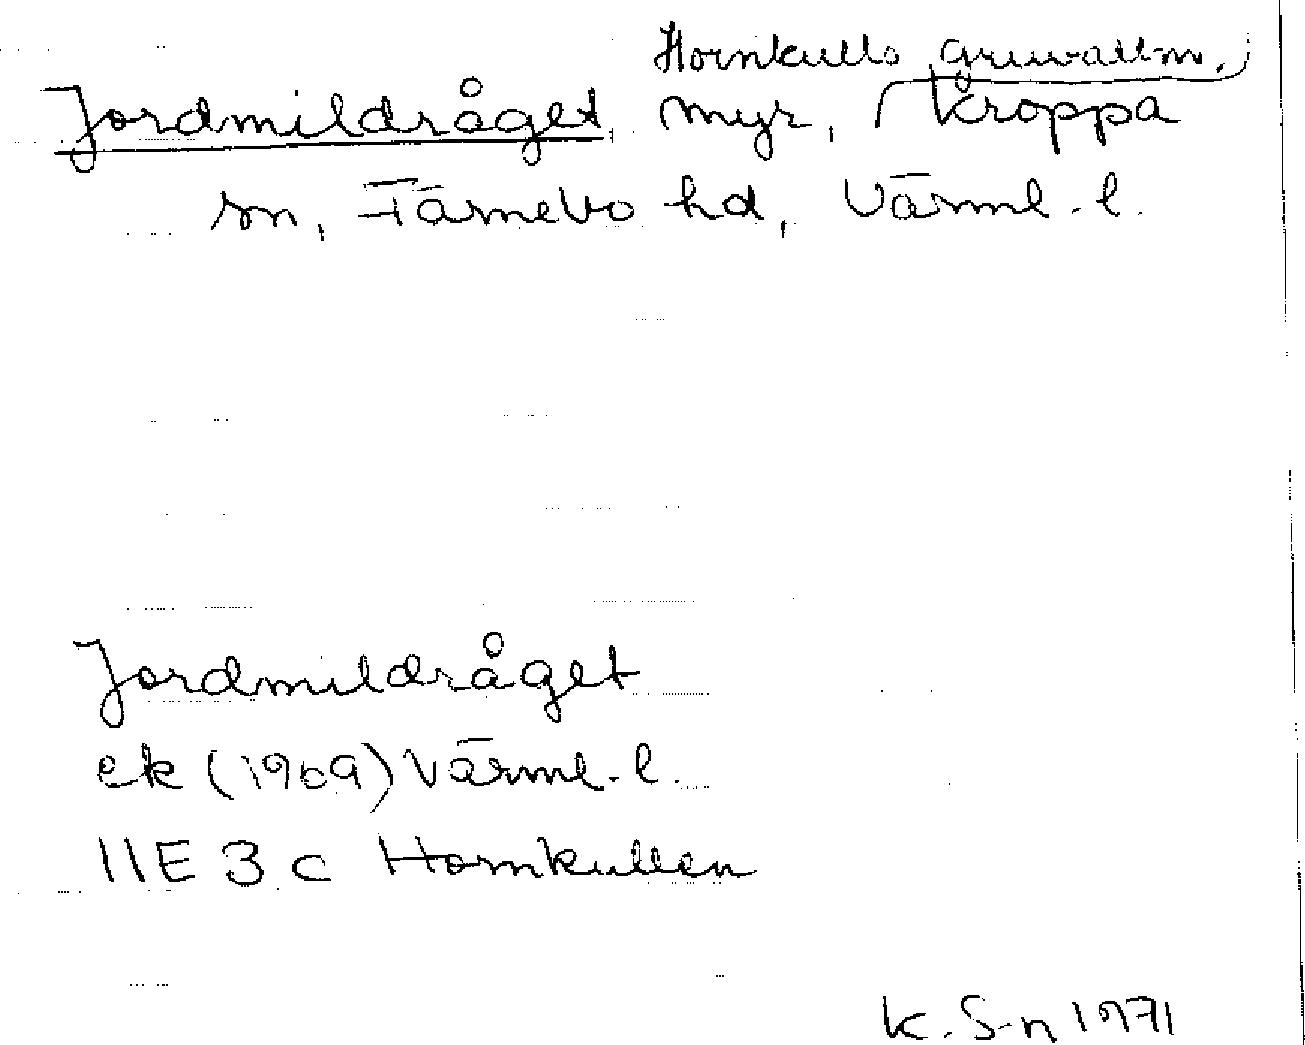 Hornkulls gruvallm.
Jordmildråget, myr, Kroppa
sn, Färnebo hd, Värml. l.
Jordmildråget
ek (1969) Värml. l.
11E 3 c Hornkullen
K. S-n 1971